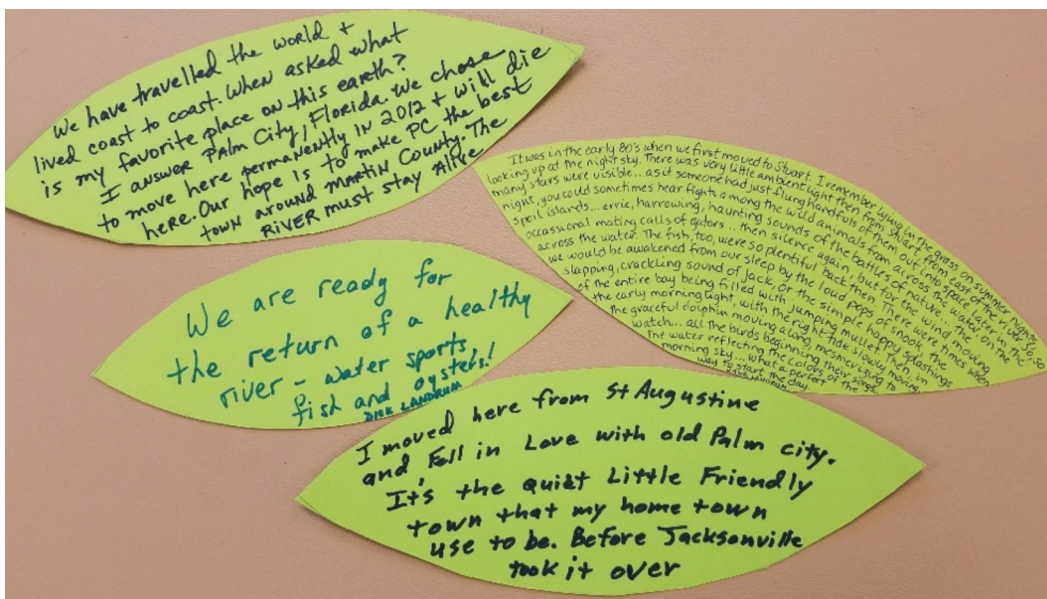 We have travelled the world +
lived coast to coast. When asked what
is my favorite place on this earth?
I answer Palm City, Florida. We chose
to move here permanently in 2012 + will die
here. Our hope is to make PC the best
town around Martin County. The
RiVER must stay Alive
It was in the early 80's when we first moved to Stuart. I remember lying in the grass on summer nights
looking up at the night sky. There was very little ambient light then from Stuart, from East of the river. So
many stars were visible... as if someone had just flung handfuls of them out into space. Later in the
night, you could sometimes hear fights among the wild animals from across the water on the
spoil islands... errie, harrowing, haunting sounds of the battles of nature... then the
occassional mating calls of gators... then silence again, but for the wind moving
across the water. The fish, too, were so plentiful back then. There were times when
we would be awakened from our sleep by the loud pops of snook, the
slapping, crackling sound of jack, or the simple happy splashings
of the entire bay being filled with jumping mullet. Then, in
the early morning light, with the right tide slowly moving,
the graceful dolphin moving along, mesmerizing to
watch... all the birds beginning their songs.
The water reflecting the colors of the
morning sky... what a perfect
way to start the day.
We are ready for
the return of a healthy
river - water sports
fish and oysters!
DICK LANDRUM
I moved here from St Augustine
and, Fell in Love with old Palm city.
It's the quiet Little Friendly
town that my home town
use to be. Before Jacksonville
took it over